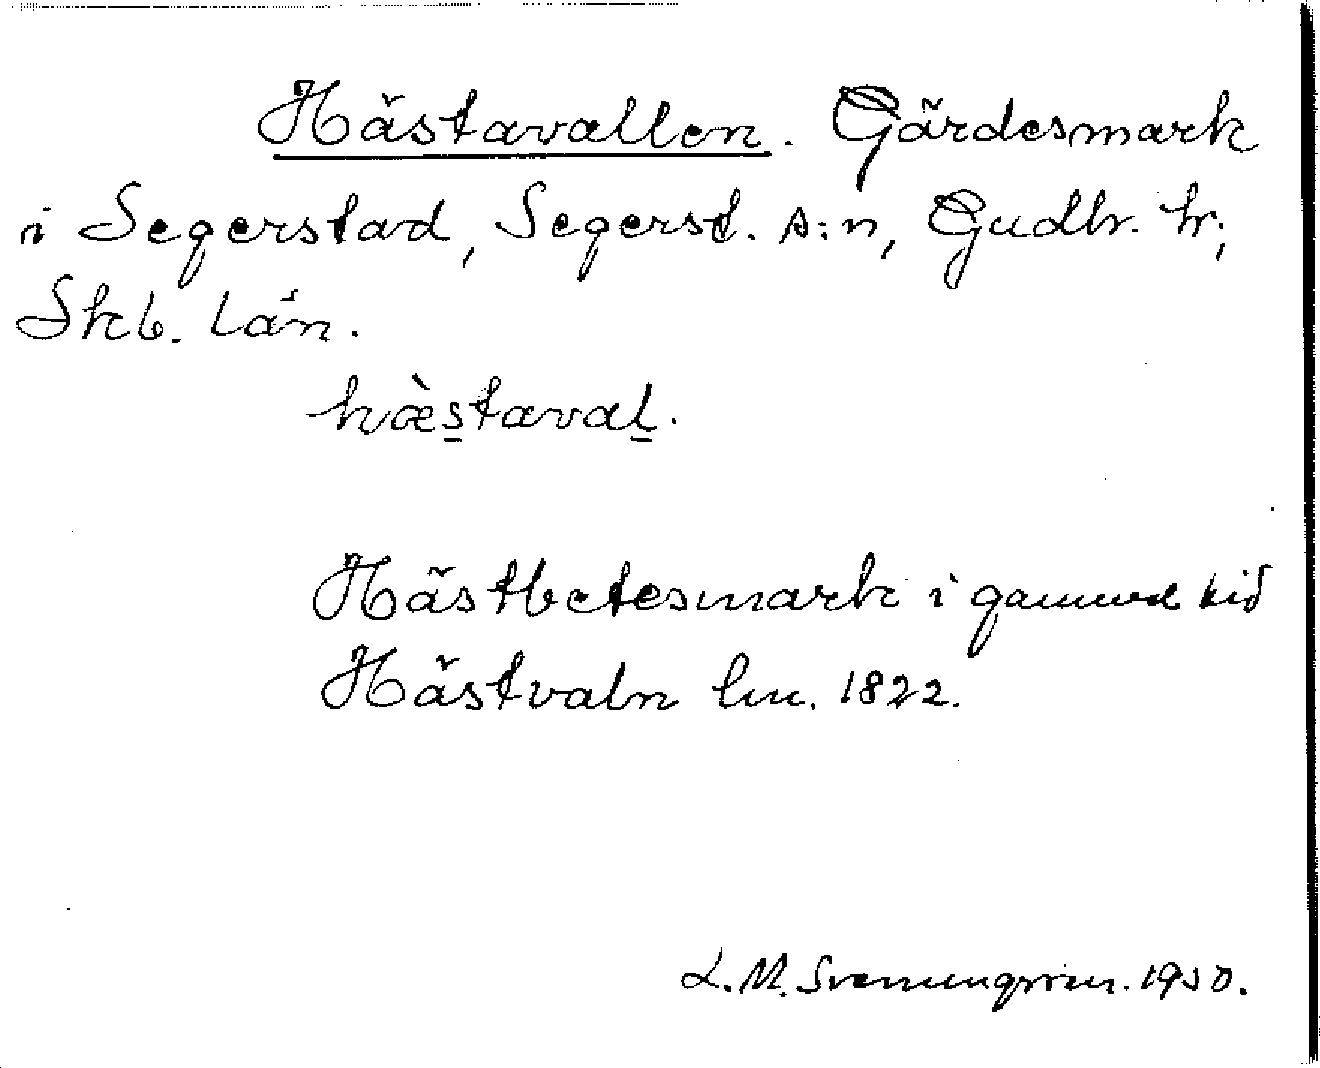 Hästavallen. Gärdesmark
i Segerstad, Segerst. s:n, Gudh. hr;
Skb. län.
hæ̀s̱tavaḻ.
Hästbetesmark i gammal tid
Hästvaln lm. 1822.
L. M. Svenungsson. 1930.